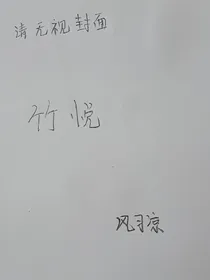 请无视封面
竹悦
风习凉